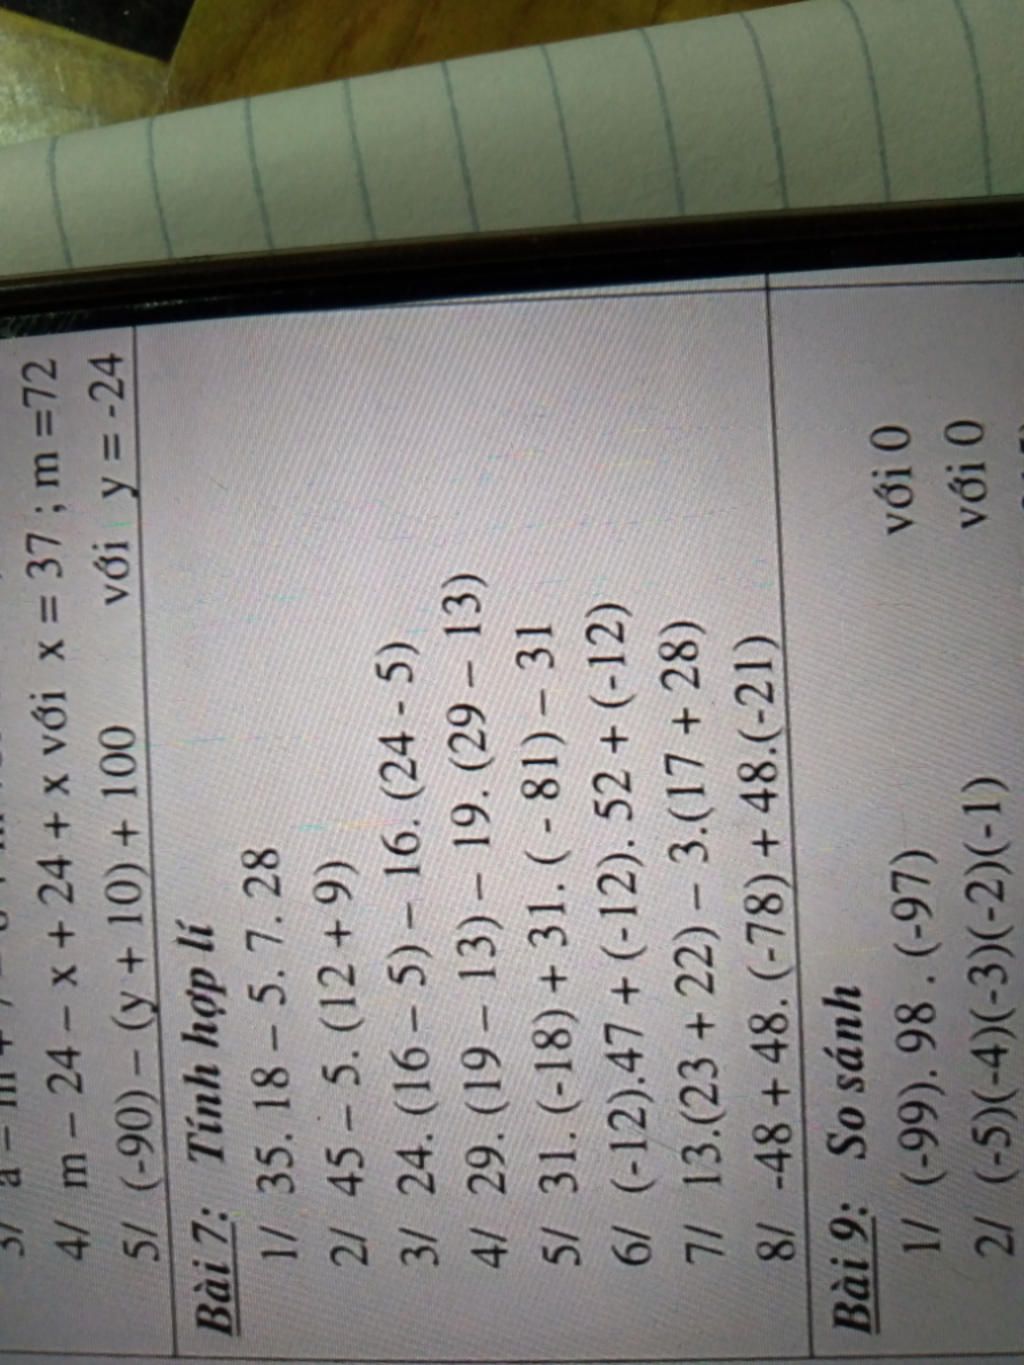 4/ m – 24 – x + 24 + x với x = 37 ; m =72
5/ (-90) – (y + 10) + 100 với y = -24
Bài 7: Tính hợp lí
1/ 35. 18 – 5. 7. 28
2/ 45 – 5. (12 + 9)
3/ 24. (16 – 5) – 16. (24 - 5)
4/ 29. (19 – 13) – 19. (29 – 13)
5/ 31. (-18) + 31. ( - 81) – 31
6/ (-12).47 + (-12). 52 + (-12)
7/ 13.(23 + 22) – 3.(17 + 28)
8/ -48 + 48. (-78) + 48.(-21)
Bài 9: So sánh
1/ (-99). 98 . (-97) với 0
2/ (-5)(-4)(-3)(-2)(-1) với 0